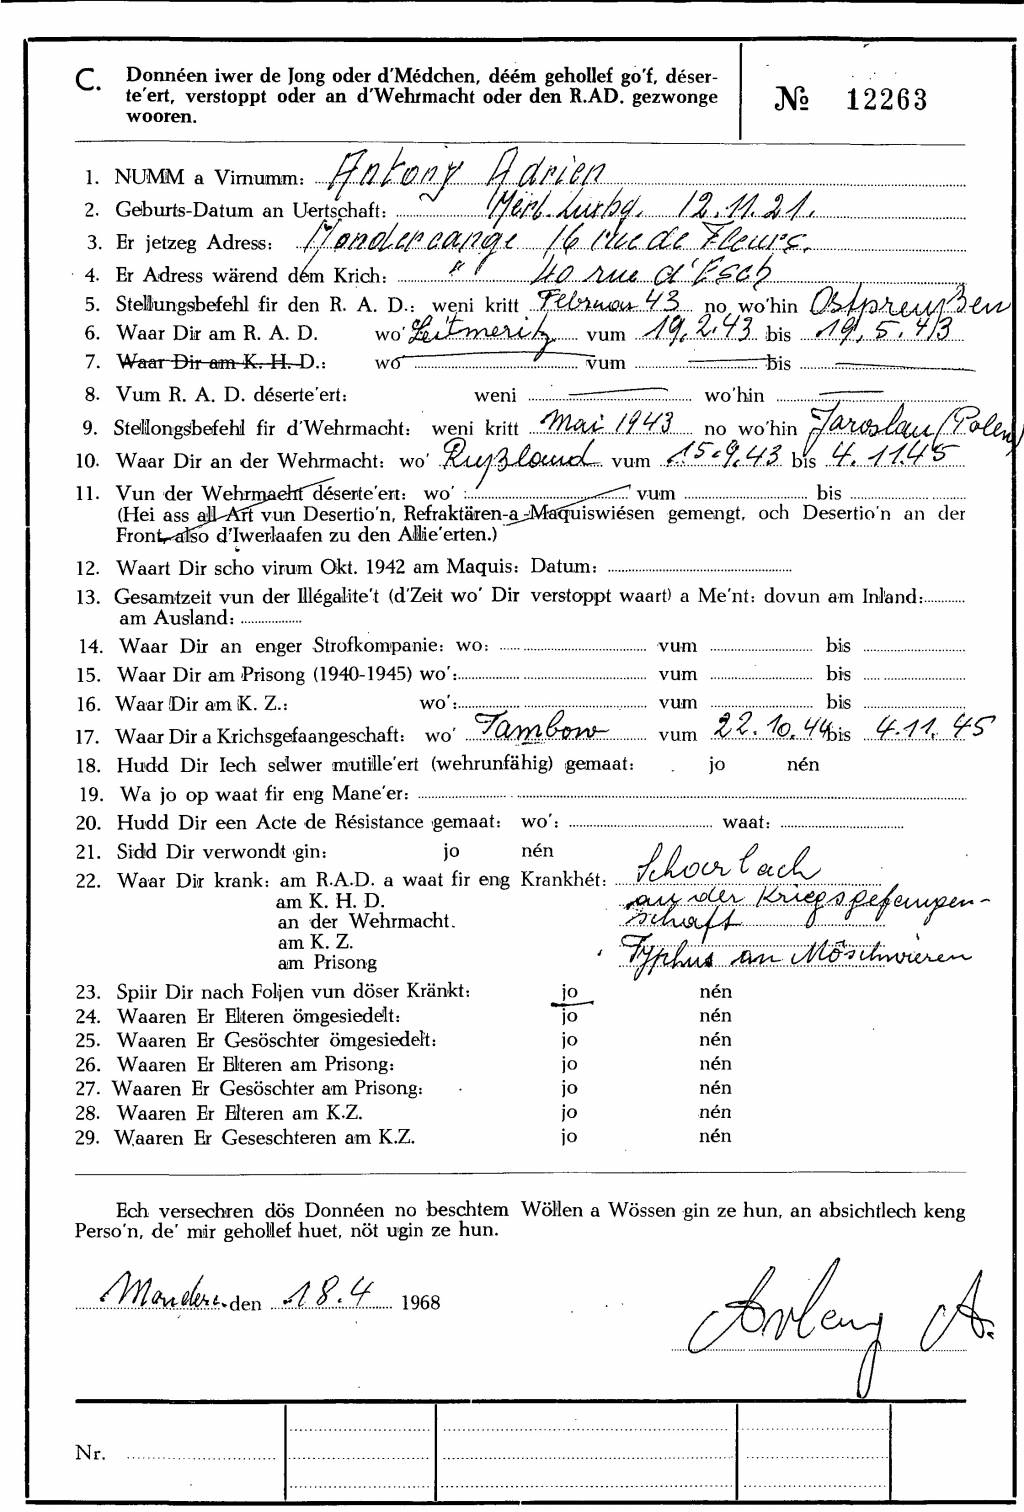 C. Donnéen iwer de Jong oder d'Médchen, déém gehollef go'f, déser-
te'ert, verstoppt oder an d'Wehrmacht oder den R.AD. gezwonge
wooren.
№ 12263
1. NUMM a Virnumm: Antony Adrien
2. Geburts-Datum an Uertschaft: Merl. Luxbg. 12.11.21.
3. Er jetzeg Adress: Mondercange 16 rue de Fleurs.
4. Er Adress wärend dém Krich: " 40 rue d'Esch
5. Stellungsbefehl fir den R. A. D.: weni kritt Februar 43 no wo'hin Ostpreußen
6. Waar Dir am R. A. D. wo' Leitmeritz vum 19.2.43 bis 19.5.43
7. Waar Dir am K. H. D.: wo vum bis
8. Vum R. A. D. déserte'ert: weni wo'hin
9. Stellongsbefehl fir d'Wehrmacht: weni kritt Mai 1943 no wo'hin Jaroslau (Polen)
10. Waar Dir an der Wehrmacht: wo' Rußland vum 15.9.43 bis 4.11.45
11. Vun der Wehrmacht déserte'ert: wo' : vum bis
(Hei ass all Art vun Desertio'n, Refraktären-a-Maquiswiésen gemengt, och Desertio'n an der
Front, also d'Iwerlaafen zu den Allie'erten.)
12. Waart Dir scho virum Okt. 1942 am Maquis: Datum:
13. Gesamtzeit vun der Illégalite't (d'Zeit wo' Dir verstoppt waart) a Me'nt: dovun am Inland:
am Ausland:
14. Waar Dir an enger Strofkompanie: wo: vum bis
15. Waar Dir am Prisong (1940-1945) wo': vum bis
16. Waar Dir am K. Z.: wo': vum bis
17. Waar Dir a Krichsgefaangeschaft: wo' Tambow vum 22.10.44 bis 4.11.45
18. Hudd Dir Iech selwer mutille'ert (wehrunfähig) gemaat: jo nén
19. Wa jo op waat fir eng Mane'er:
20. Hudd Dir een Acte de Résistance gemaat: wo': waat:
21. Sidd Dir verwondt gin: jo nén
22. Waar Dir krank: am R.A.D. a waat fir eng Krankhét: Scharlach
am K. H. D. an der Kriegsgefangen-
an der Wehrmacht. schaft
am K. Z.
am Prisong Typhus an
23. Spiir Dir nach Foljen vun döser Kränkt: jo nén
24. Waaren Er Elteren ömgesiedelt: jo nén
25. Waaren Er Gesöschter ömgesiedelt: jo nén
26. Waaren Er Elteren am Prisong: jo nén
27. Waaren Er Gesöschter am Prisong: jo nén
28. Waaren Er Elteren am K.Z. jo nén
29. Waaren Er Geseschteren am K.Z. jo nén
Ech versechren dös Donnéen no beschtem Wöllen a Wössen gin ze hun, an absichtlech keng
Perso'n, de' mir gehollef huet, nöt ugin ze hun.
Monderc. den 18.4 1968
A.
Nr.